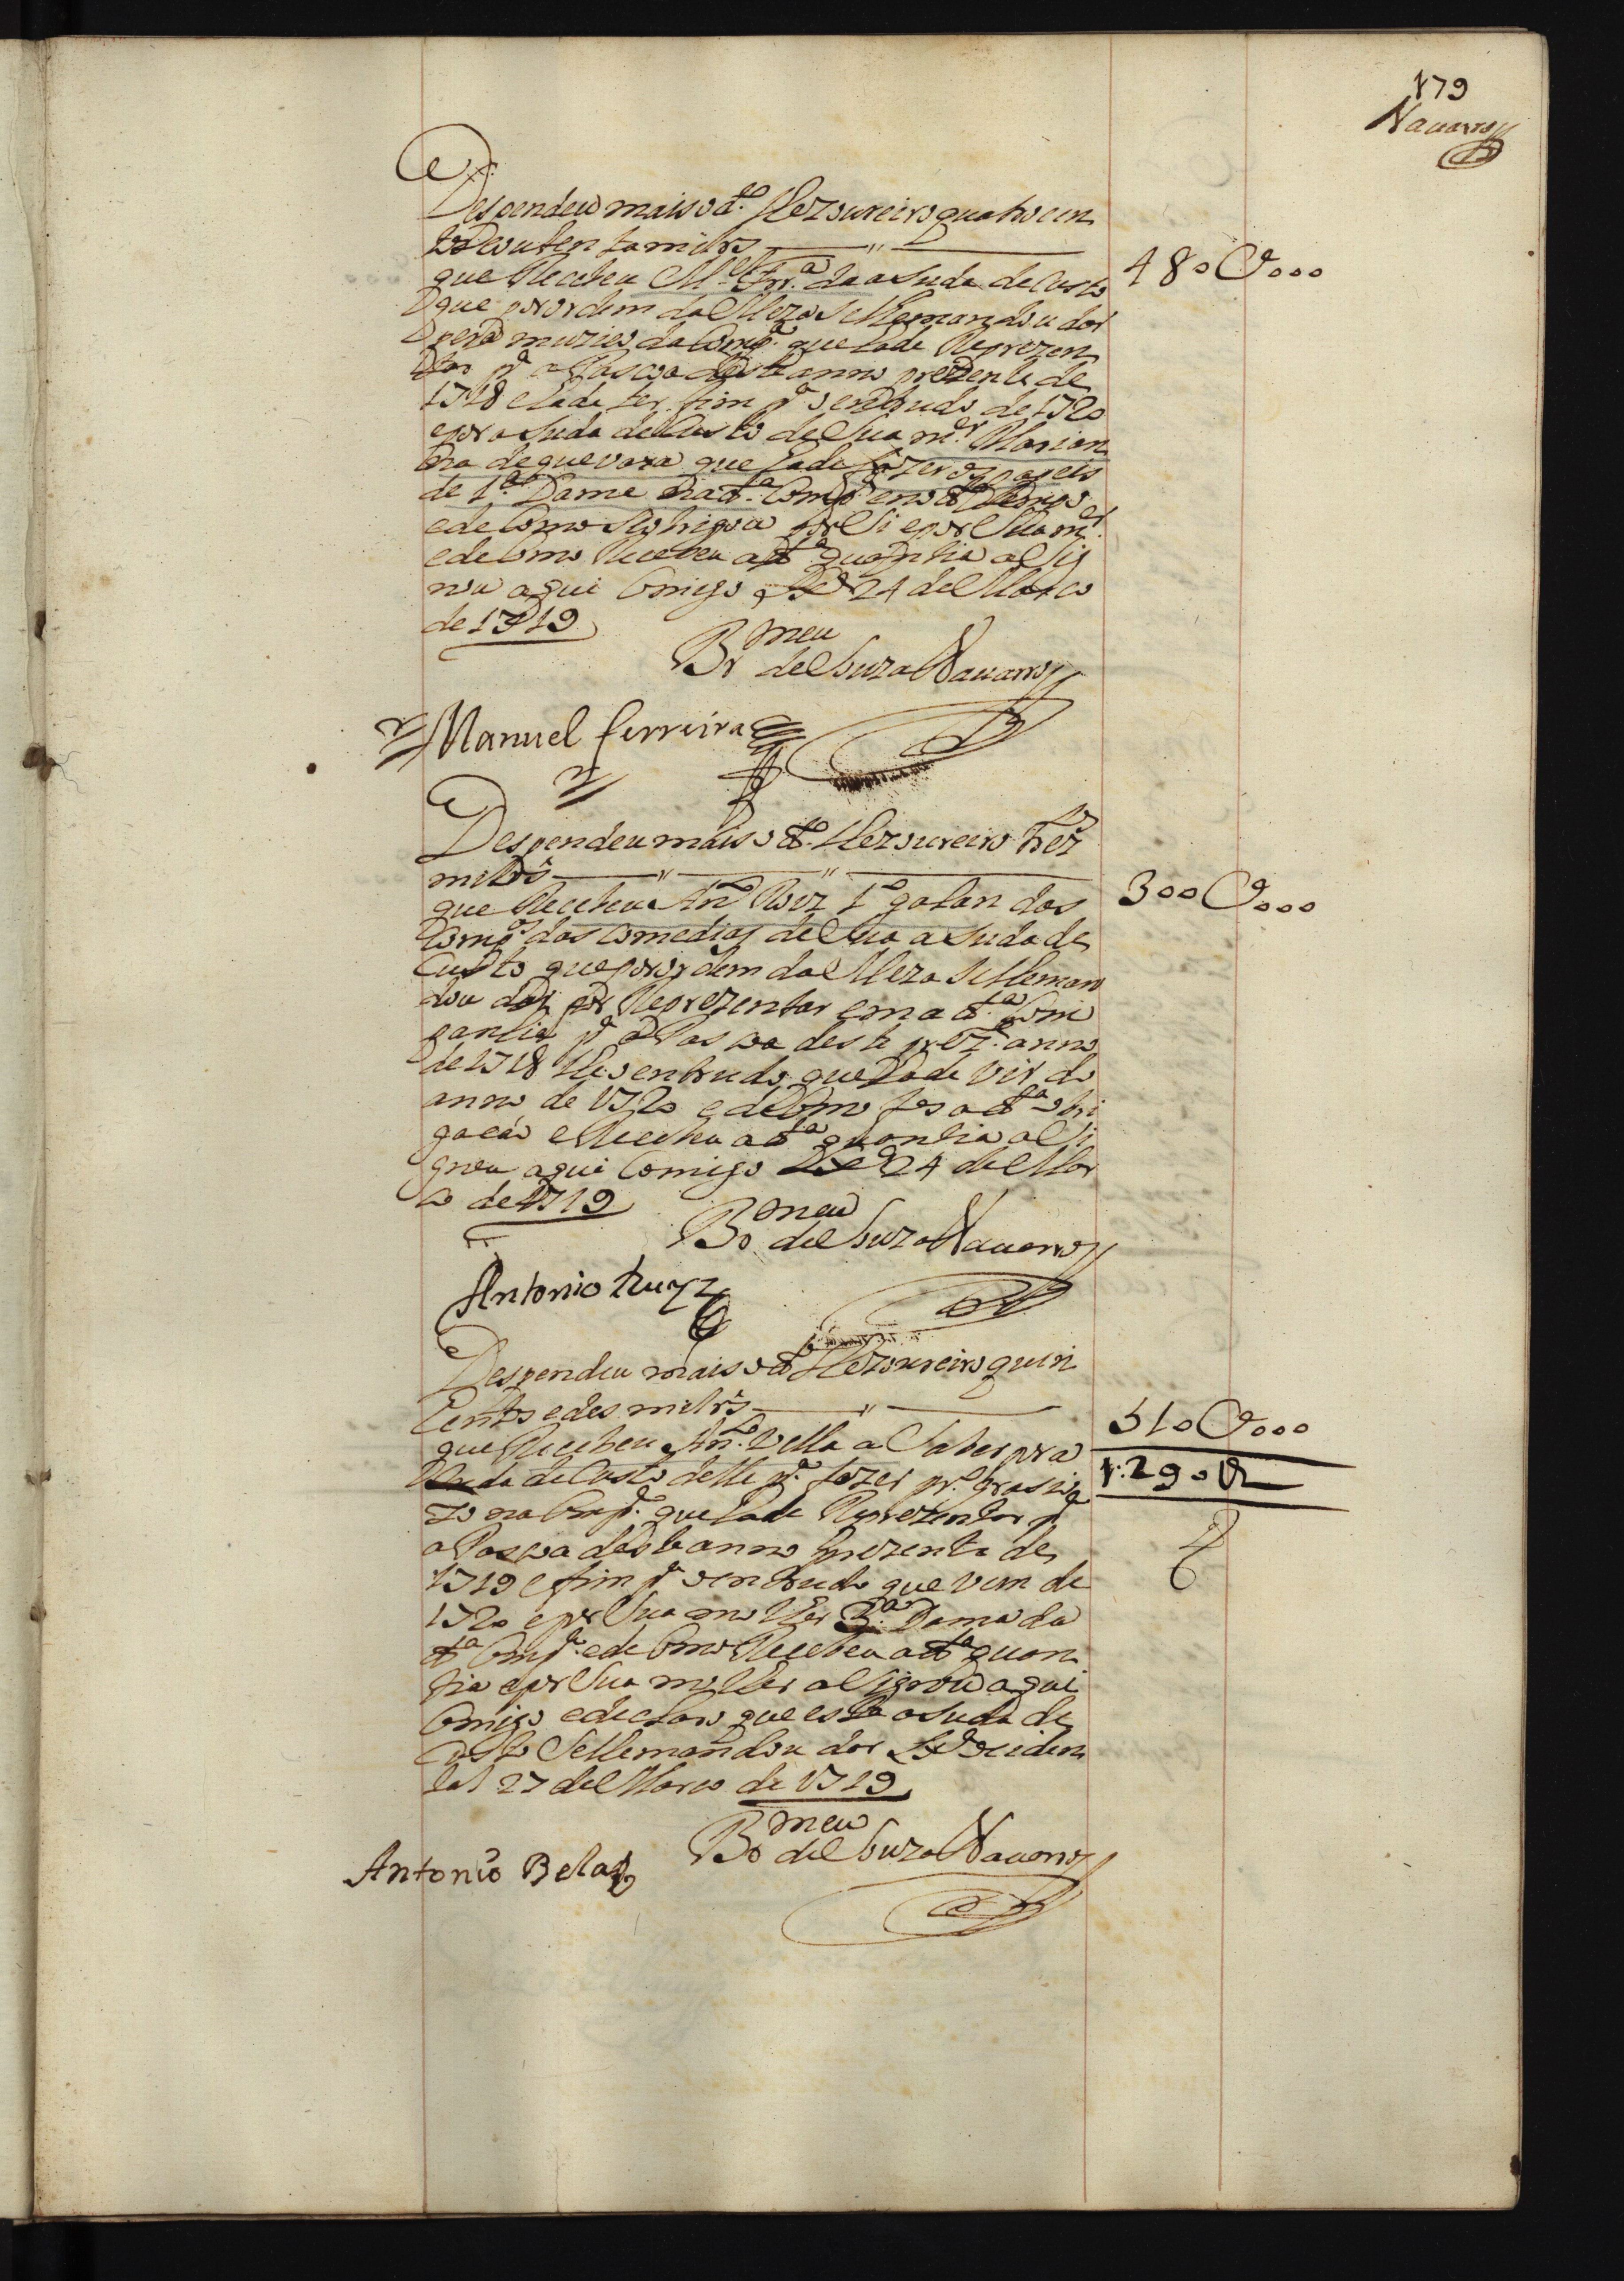 179
Navarro
Despendeu mais o d.to Thezoureiro quatrocen
tos e outenta mil rs
480U000
que Recebeu M.el Frr.a da ajuda de Custo
que por ordem da Meza se lhe mandou dar
pera muzico da Comp.a que hade Reprezen
tar p.a a Pascoa deste anno prezente de
1718 e hade ter fim p.o entrudo de 1720
e por ajuda de Custo de sua m.er Marian
na de guevara que hade fazer os papeis
de 1.a Dama na d.a Comp.a
e de Como se obrigou por si e por sua m.er
e de Como Recebeu a d.ta quantia asig
nou aqui Comigo 24 de Março
de 1719
Br.meu de Souza Navarro
Manuel ferreira
Despendeu mais o d.to Thezoureiro trez.tos
mil rs
300U000
que Recebeu An.to Roiz 1.o galan das
Comp.as das comedias de sua ajuda de
Custo que por ordem da Meza se lhe man
dou dar por Reprezentar em a d.ta Com
panhia p.a a Pascoa deste prez.te anno
de 1718 the o entrudo que hade vir do
anno de 1720 e de Como fes a d.ta obri
gacão e Recebeu a d.ta quantia asi
gnou aqui Comigo 24 de Mar
co de 1719
Bo.meu de Souza Navarro
Antonio Ruyz
Despendeu mais o d.to Thezoureiro quin
hentos e des mil rs
510U000
que Recebeu An.to Vella a Saber por a
juda de Custo delle p.a fazer pr.o gracio
1:290U
zo na Comp.a que hade Reprezentar p.a
a Pascoa deste anno prezente de
1719 e fim p.o entrudo que vem de
1720 e por sua molher 3.a Dama da
d.ta Comp.a e de Como Recebeu a d.ta quan
tia e por sua molher asignou aqui
Comigo e declaro que esta ajuda de
Custo se lhe mandou dar Lx.a ociden
tal 27 de Março de 1719
Bo.meu de Souza Navarro
Antonio Bela